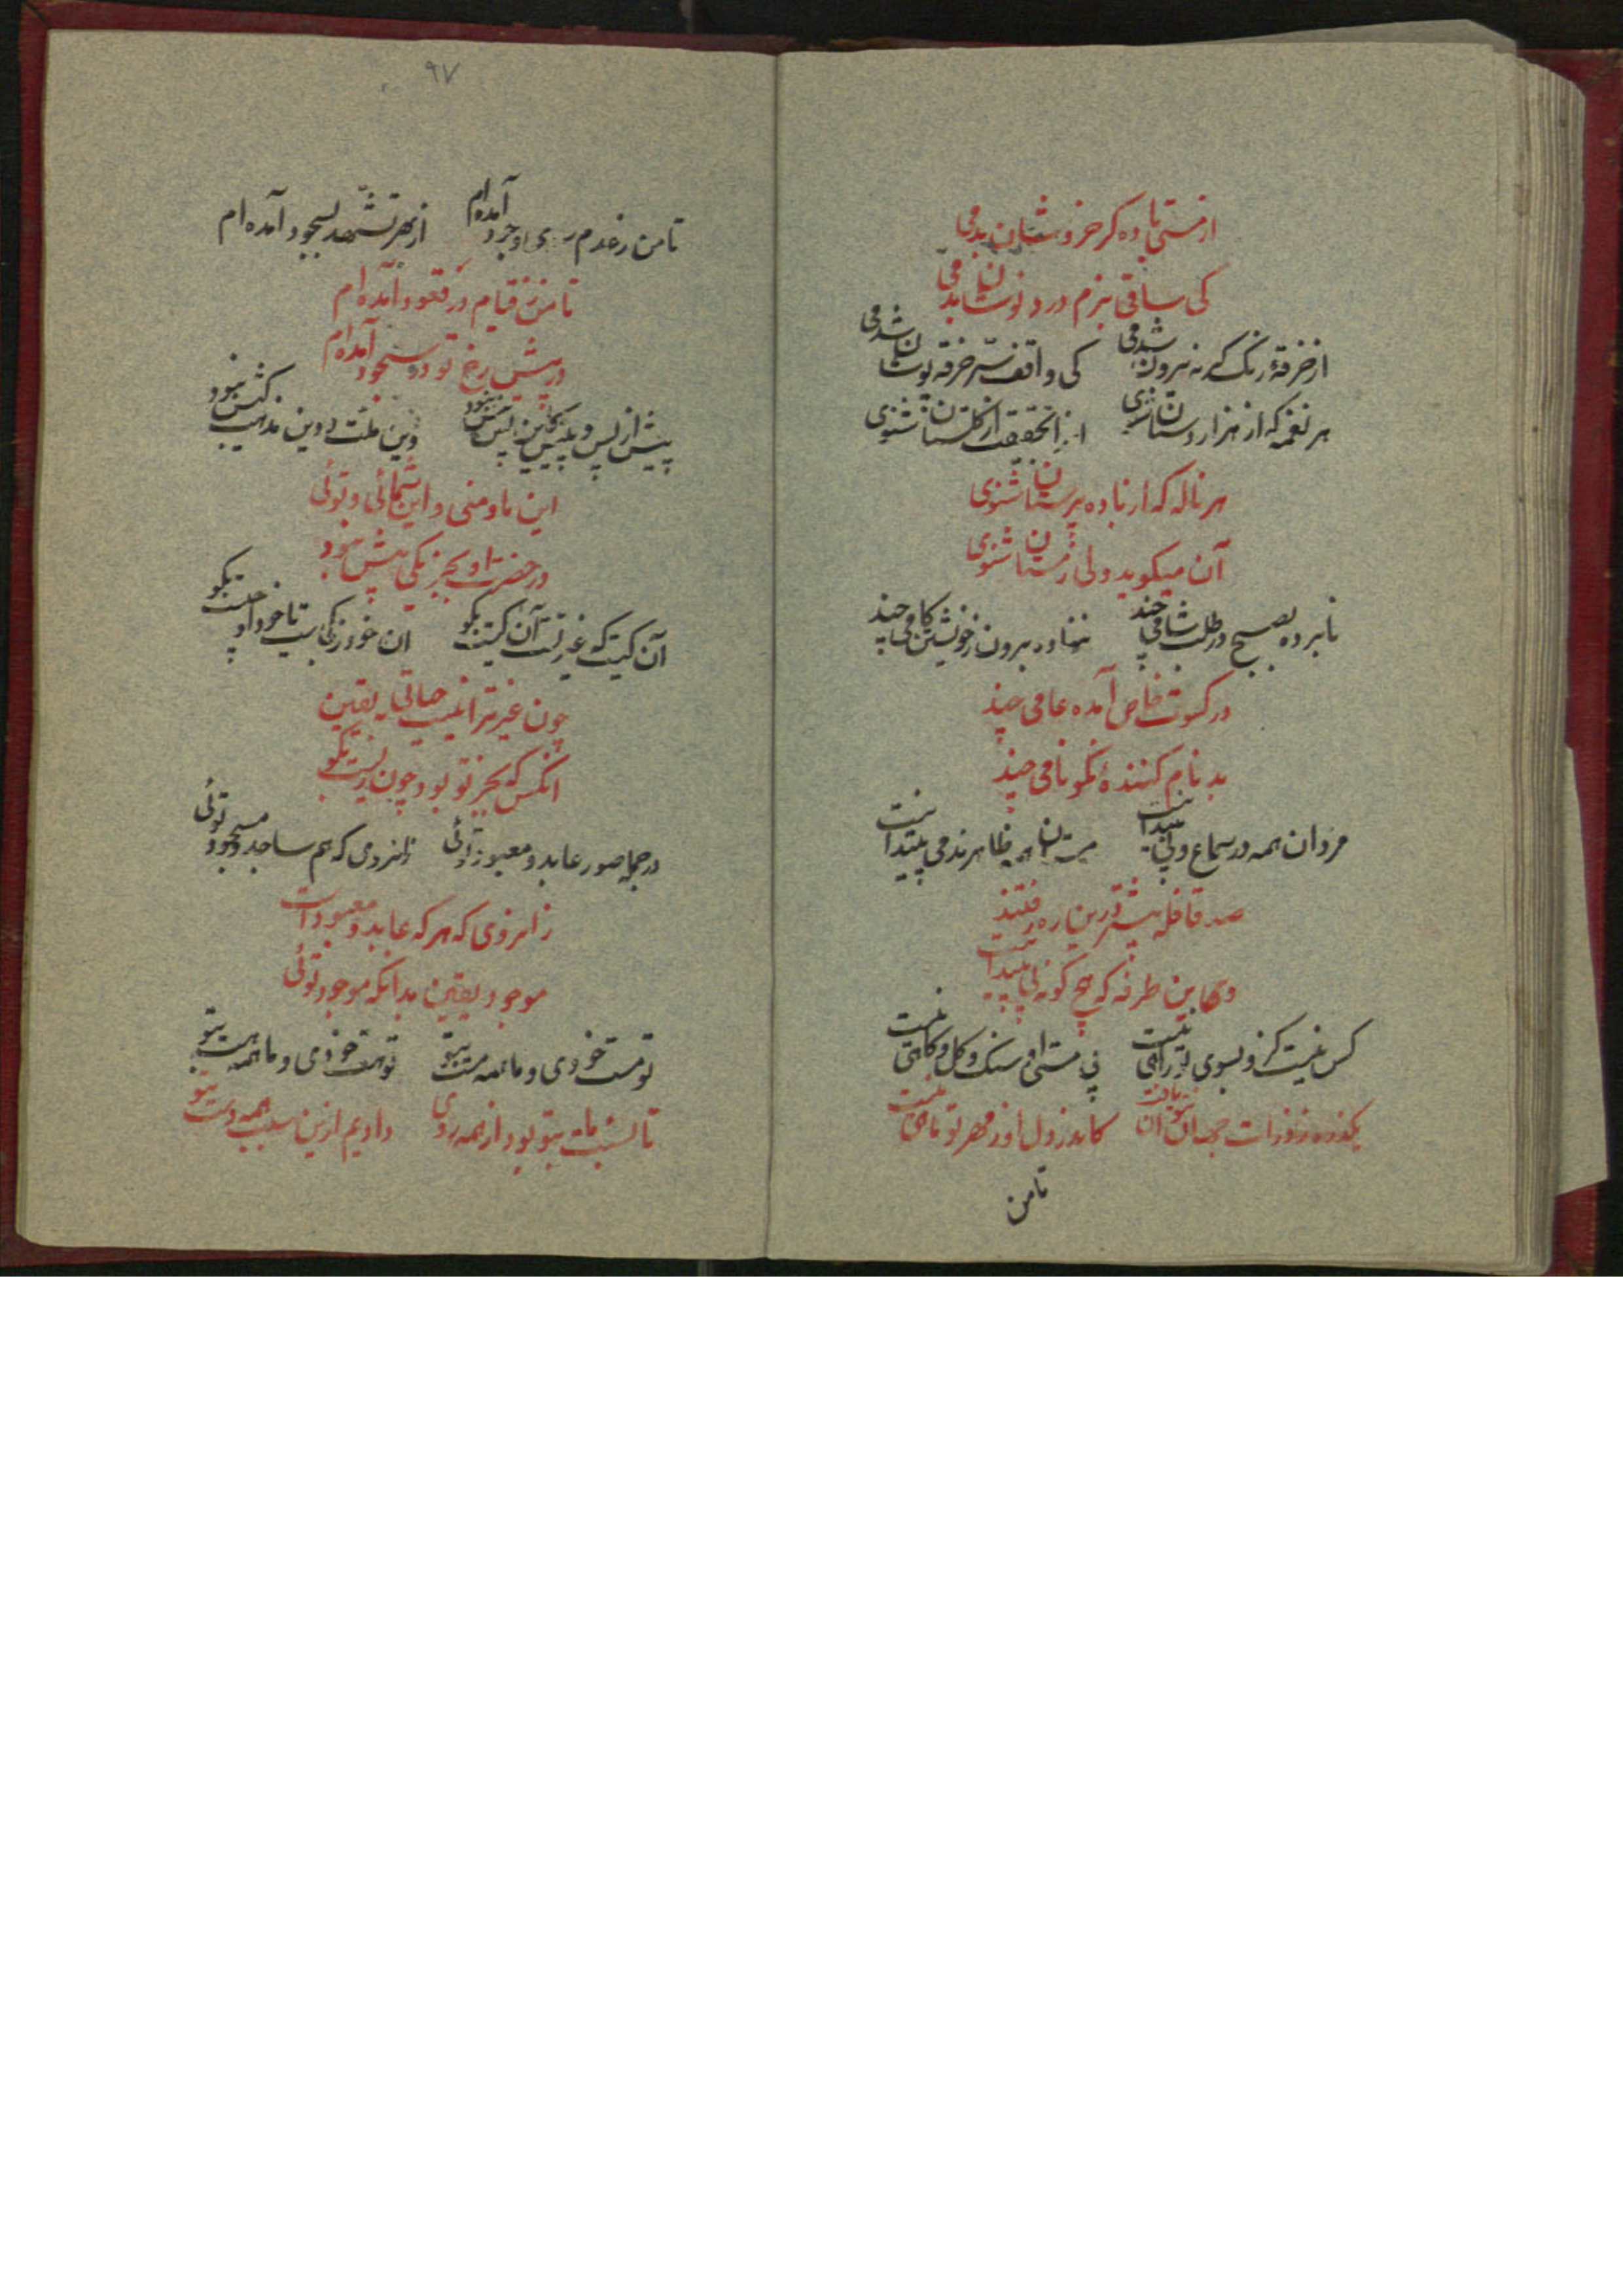 از مستی باده گر خروشان بدمی
کی ساقی بزم درد نوشان بدمی
از خرقهٔ رنگ گر نه بیرون شدمی کی واقف سر خرقه پوشان شدمی
هر نغمه که از هزار دستان شنوی آن از گلستان شنوی
هر ناله که از باده پرستان شنوی
آن میگوید ولی ز مستان شنوی
نابرده بصبح در طلب شامی چند ننهاده برون ز خویشتن گامی چند
در کسوت خاص آمده عامی چند
بد نام کنندهٔ نکونامی چند
مردان همه در سماع و نی پیدا نیست مستان همه ظاهرند و می پیدا نیست
صد قافله بیشتر درین ره رفتند
وین طرفه که هیچ گونه پی پیدا نیست
کس نیست کزو بسوی تو راهی نیست بی هستی او سنگ و گل و کاهی نیست
یک ذره ز ذرات جهان نتوان یافت کاندر دل او ز مهر تو ماهی نیست
تا من
۹۷
تا من ز عدم سوی وجود آمده ام از بهر تشهد بسجود آمده ام
تا من ز قیام در قعود آمده ام
در پیش رخ تو در سجود آمده ام
پیش از پس و پیش نبود دین ملت و دین مذهب کیش نبود
این ما و منی و این شمائی و توئی
در حضرت او بجز یکی بیش نبود
آن کیست که غیر تست آن کیست بگو آن خود ز کجاست تا خود او چیست بگو
چون غیر ترا نیست حیاتی بیقین
آنکس که بجز تو بود چون زیست بگو
در جمله صور عابد و معبود توئی زانروی که هم ساجد و مسجود توئی
زانروی که هر که عابد و معبود است
موجود یقین بدانکه موجود توئی
تو مست خودی و ما همه مست بتو تو هست خودی و ما همه هست بتو
تا نسبت ما بتو بود از همه روی دادیم ازین سبب همه دست بتو